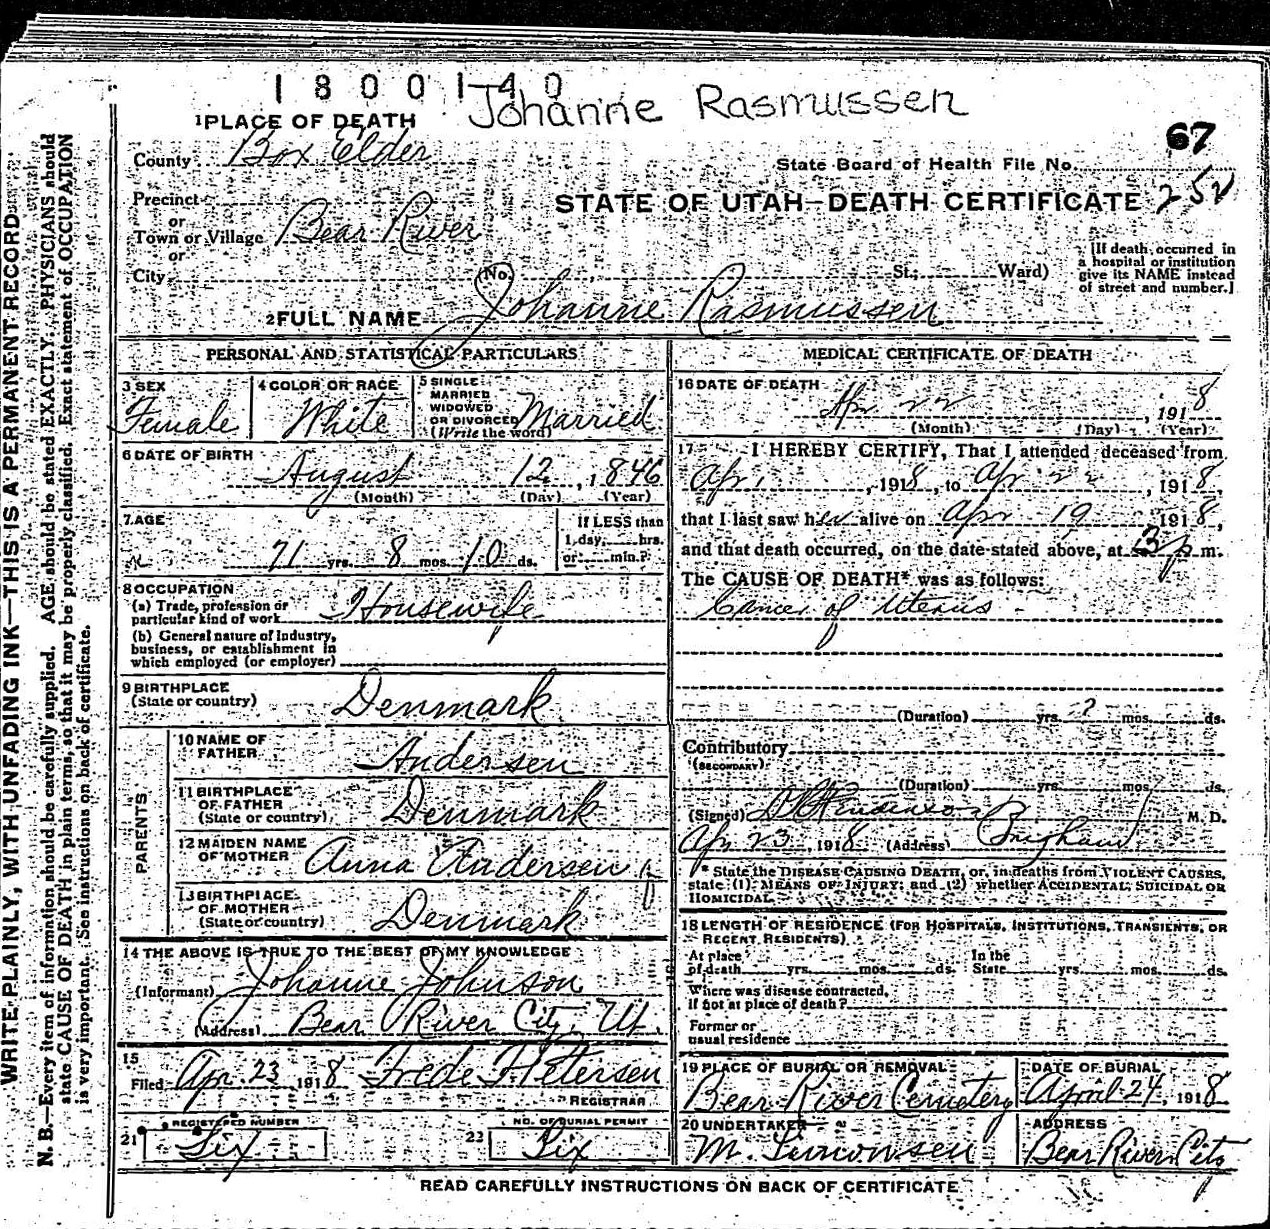 1800140 Johanne Rasmussen
1 PLACE OF DEATH
67
County Box Elder
State Board of Health File No.
Precinct
STATE OF UTAH—DEATH CERTIFICATE 252
or
Town or Village Bear River
or
City (No. St.; Ward)
[If death occurred in
a hospital or institution
give its NAME instead
of street and number.]
2 FULL NAME Johanne Rasmussen
PERSONAL AND STATISTICAL PARTICULARS
3 SEX
Female
4 COLOR OR RACE
White
5 SINGLE
MARRIED
WIDOWED
OR DIVORCED
(Write the word) Married
6 DATE OF BIRTH
August 12, 1846
(Month) (Day) (Year)
7 AGE
71 yrs. 8 mos. 10 ds.
If LESS than
1 day, hrs.
or min.?
8 OCCUPATION
(a) Trade, profession or
particular kind of work Housewife
(b) General nature of Industry,
business, or establishment in
which employed (or employer)
9 BIRTHPLACE
(State or country) Denmark
PARENTS
10 NAME OF
FATHER Andersen
11 BIRTHPLACE
OF FATHER
(State or country) Denmark
12 MAIDEN NAME
OF MOTHER Anna Andersen
13 BIRTHPLACE
OF MOTHER
(State or country) Denmark
14 THE ABOVE IS TRUE TO THE BEST OF MY KNOWLEDGE
(Informant) Johanne Johnson
(Address) Bear River City, Ut.
15
Filed Apr. 23 1918 Frede F. Petersen
REGISTRAR
21 REGISTERED NUMBER
Six
22 NO. OF BURIAL PERMIT
Six
MEDICAL CERTIFICATE OF DEATH
16 DATE OF DEATH
Apr 22, 1918
(Month) (Day) (Year)
17 I HEREBY CERTIFY, That I attended deceased from
Apr 1, 1918, to Apr 22, 1918,
that I last saw her alive on Apr 19 1918,
and that death occurred, on the date stated above, at 3 p m.
The CAUSE OF DEATH* was as follows:
Cancer of Uterus
(Duration) yrs. ? mos. ds.
Contributory
(SECONDARY)
(Duration) yrs. mos. ds.
(Signed) M. D.
Apr 23, 1918 (Address) Brigham
* State the DISEASE CAUSING DEATH, or, in deaths from VIOLENT CAUSES,
state (1) MEANS OF INJURY; and (2) whether ACCIDENTAL, SUICIDAL OR
HOMICIDAL.
18 LENGTH OF RESIDENCE (FOR HOSPITALS, INSTITUTIONS, TRANSIENTS, OR
RECENT RESIDENTS)
At place In the
of death yrs. mos. ds. State yrs. mos. ds.
Where was disease contracted,
If not at place of death?
Former or
usual residence
19 PLACE OF BURIAL OR REMOVAL
Bear River Cemetery
DATE OF BURIAL
April 24, 1918
20 UNDERTAKER
M.
ADDRESS
Bear River City
READ CAREFULLY INSTRUCTIONS ON BACK OF CERTIFICATE
WRITE PLAINLY, WITH UNFADING INK—THIS IS A PERMANENT RECORD
N. B.—Every item of information should be carefully supplied. AGE should be stated EXACTLY. PHYSICIANS should
state CAUSE OF DEATH in plain terms, so that it may be properly classified. Exact statement of OCCUPATION
is very important. See instructions on back of certificate.